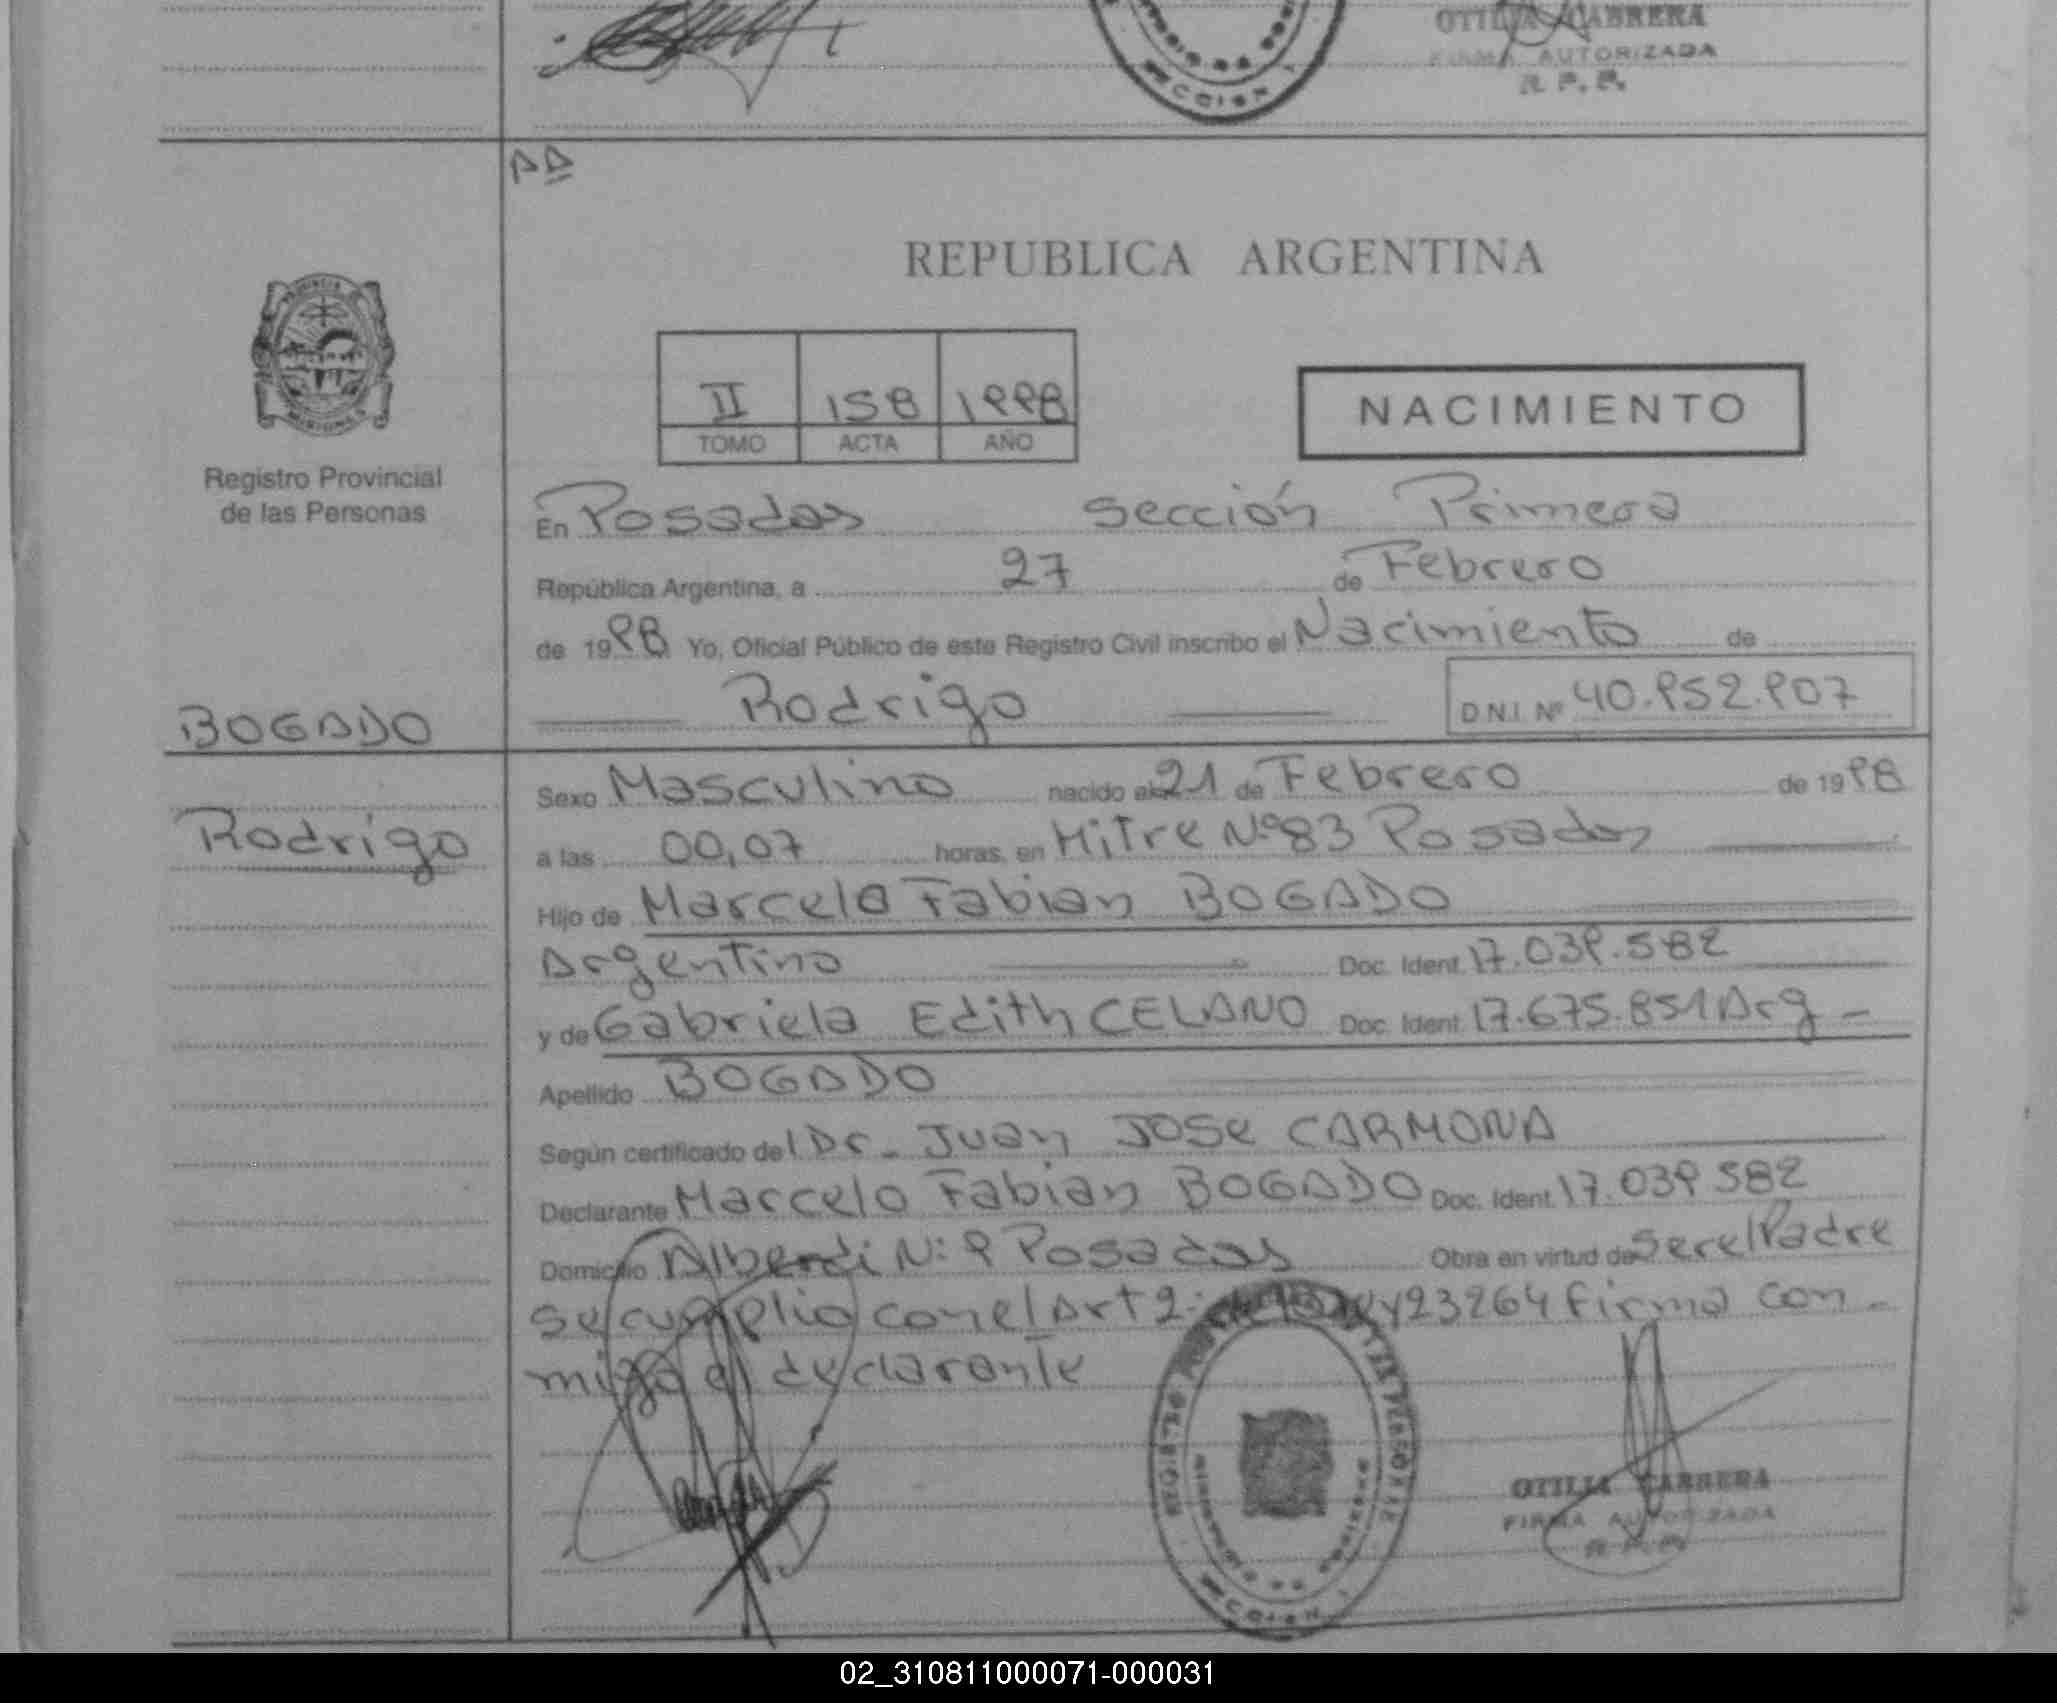 OTILIA CABRERA
FIRMA AUTORIZADA
R. P. P.
SECCION 1
REPUBLICA ARGENTINA
PROVINCIA DE
MISIONES
Registro Provincial
de las Personas
II 158 1998
TOMO ACTA AÑO
NACIMIENTO
En Posadas Sección Primera
República Argentina, a 27 de Febrero
de 1998 Yo, Oficial Público de este Registro Civil inscribo el Nacimiento de
Rodrigo D.N.I. Nº 40.952.907
BOGADO
Rodrigo
Sexo Masculino nacido el 21 de Febrero de 1998
a las 00,07 horas, en Mitre Nº 83 Posadas
Hijo de Marcelo Fabian BOGADO
Argentino Doc. Ident. 17.039.582
y de Gabriela Edith CELANO Doc. Ident. 17.675.851 Arg -
Apellido BOGADO
Según certificado del Dr. Juan JOSE CARMONA
Declarante Marcelo Fabian BOGADO Doc. Ident. 17.039 582
Domicilio Alberdi N: 9 Posadas Obra en virtud de Ser el Padre
se cumplio con el Art 2: Ley 23264 firma con-
migo el declarante
REGISTRO DE LAS PERSONAS
SECCION 1
OTILIA CABRERA
FIRMA AUTORIZADA
R. P. P.
02_310811000071-000031